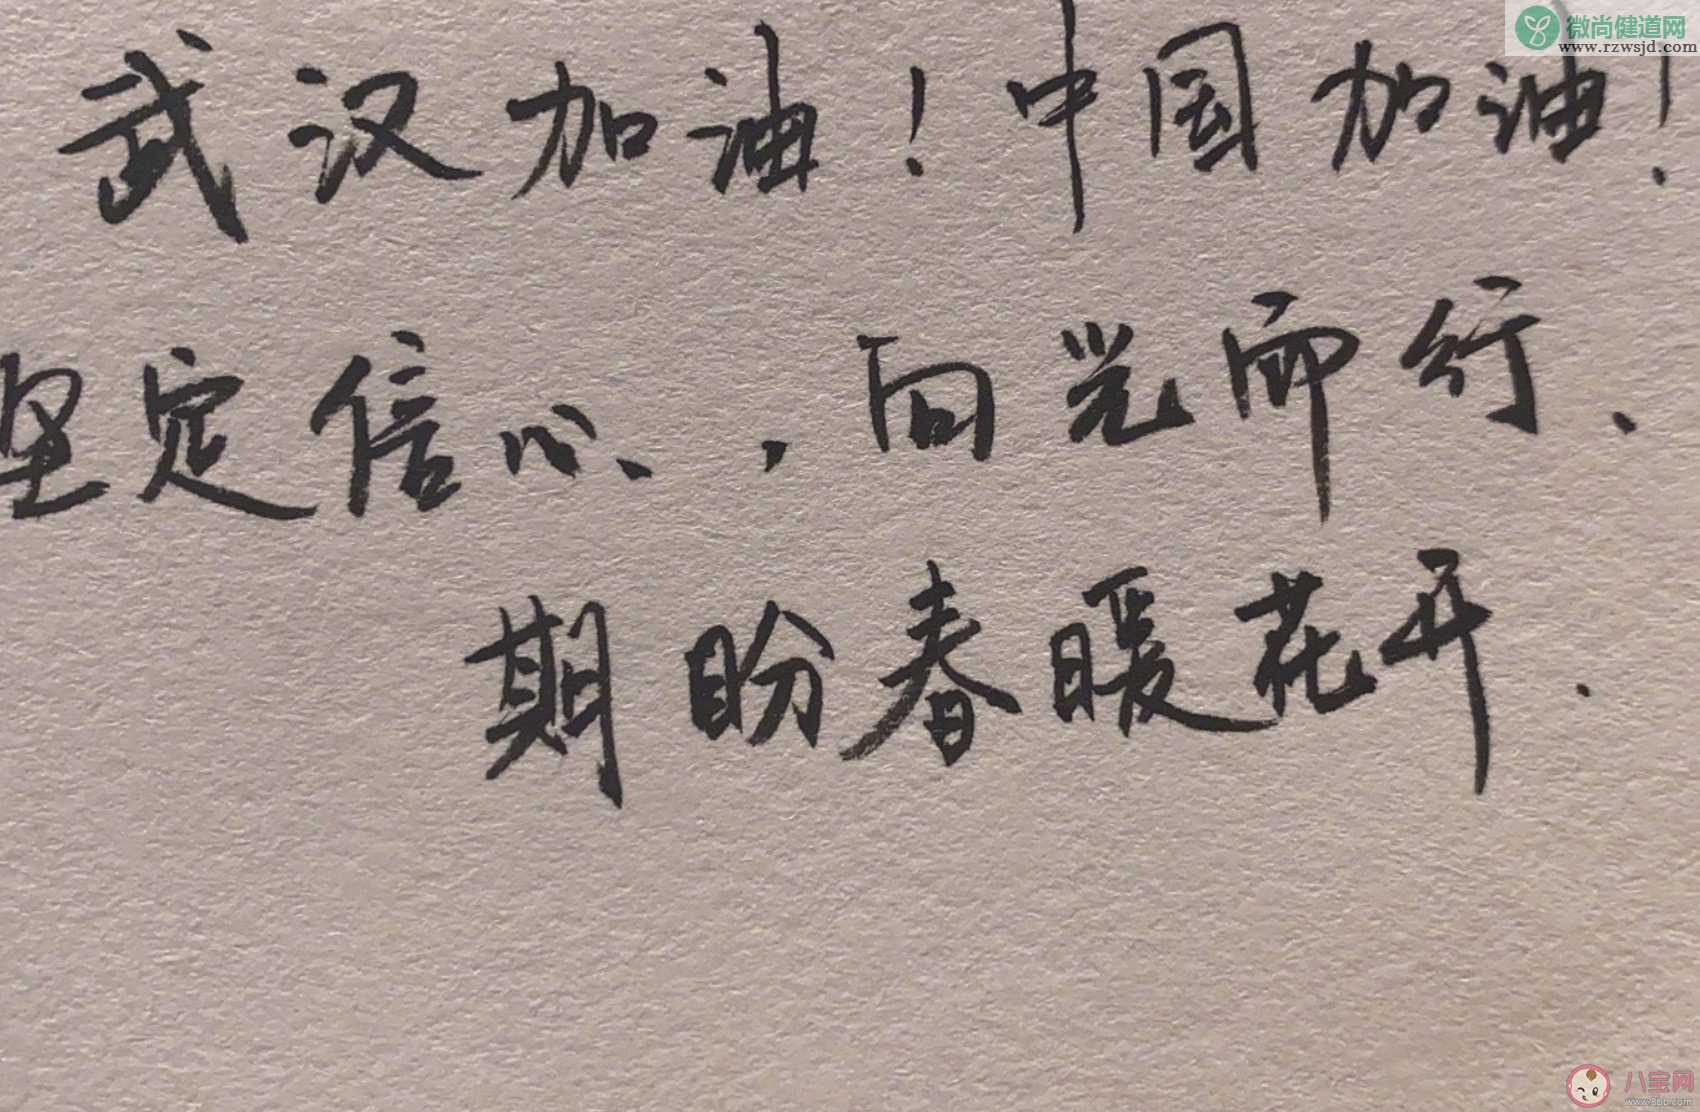 微尚健道网
www.rzwsjd.com
武汉加油！中国加油！
坚定信心，向光而行、
期盼春暖花开.
八宝网